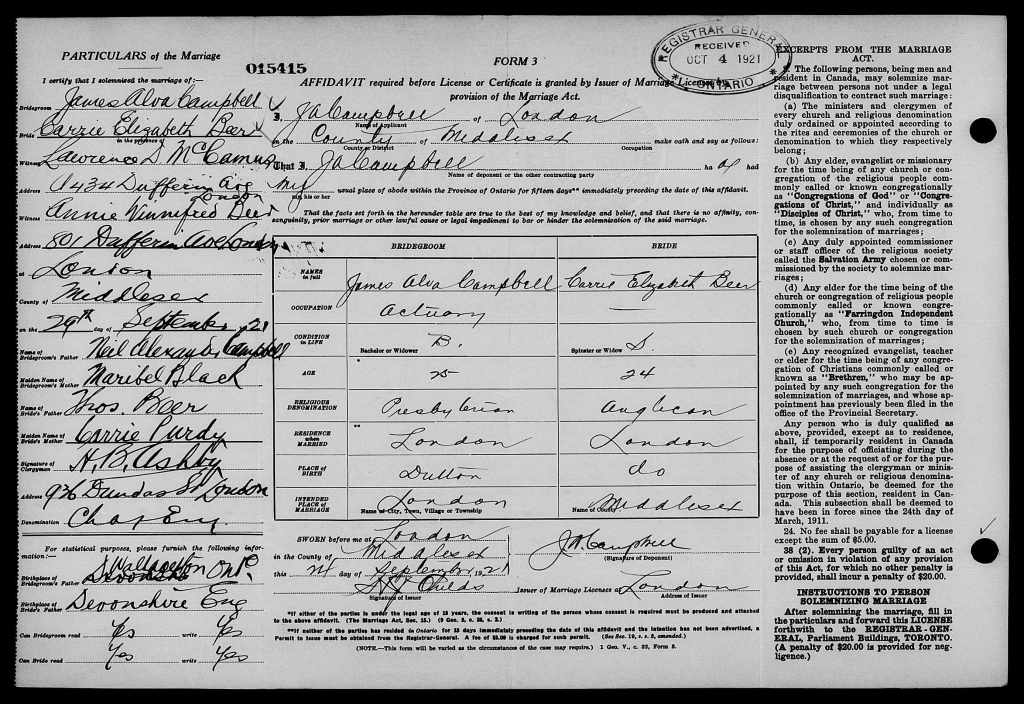 PARTICULARS of the Marriage
I certify that I solemnized the marriage of:—
Bridegroom James Alva Campbell
Bride Carrie Elizabeth Beer
in the presence of
Witness Lawrence S. McCamus
Address 434 Dufferin Ave
London
Witness Annie Winnifred Beer
Address 801 Dufferin Ave London
at London
County of Middlesex
on the 29th day of September 21
Name of Bridegroom's Father Neil Alexander Campbell
Maiden Name of Bridegroom's Mother Maribel Black
Name of Bride's Father Thos. Beer
Maiden Name of Bride's Mother Carrie Purdy
Signature of Clergyman H. B. Ashby
Address 936 Dundas St London
Denomination Ch of Eng.
For statistical purposes, please furnish the following information:—
Birthplace of Bridegroom's Father Ont
Birthplace of Bride's Father Devonshire Eng
Can Bridegroom read Yes write Yes
Can Bride read Yes write Yes
015415
FORM 3
REGISTRAR GENERAL
RECEIVED
OCT 4 1921
* ONTARIO *
AFFIDAVIT required before License or Certificate is granted by Issuer of Marriage Licenses by
provision of the Marriage Act.
I, J A Campbell of London
Name of Applicant
in the County of Middlesex make oath and say as follows:
County or District Occupation
That I, J A Campbell ha d had
Name of deponent or the other contracting party
my usual place of abode within the Province of Ontario for fifteen days** immediately preceding the date of this affidavit.
my, his or her
That the facts set forth in the hereunder table are true to the best of my knowledge and belief, and that there is no affinity, consanguinity, prior marriage or other lawful cause or legal impediment to bar or hinder the solemnization of the said marriage.
BRIDEGROOM BRIDE
NAMES in full James Alva Campbell Carrie Elizabeth Beer
OCCUPATION Actuary —
CONDITION in LIFE B. S.
Bachelor or Widower Spinster or Widow
AGE * 25 24
RELIGIOUS DENOMINATION Presbyterian Anglican
RESIDENCE when MARRIED ** London London
PLACE OF BIRTH Dutton do
INTENDED PLACE OF MARRIAGE London Middlesex
Name of City, Town, Village or Township Name of County
SWORN before me at London
in the County of Middlesex
this day of September 1921
J. A. Campbell
(Signature of Deponent)
Childs Issuer of Marriage Licenses at London
Signature of Issuer Address of Issuer
*If either of the parties is under the legal age of 18 years, the consent in writing of the person whose consent is required must be produced and attached
to the above affidavit. (The Marriage Act, Sec. 15.) (9 Geo. 5, c. 35, s. 2.)
**If neither of the parties has resided in Ontario for 15 days immediately preceding the date of this affidavit and the intention has not been advertised, a
Permit to issue must be obtained from the Registrar-General. A fee of $5.00 is charged for such permit. (See Sec. 19, s.s. 2, amended.)
(NOTE.—This form will be varied as the circumstances of the case may require.) 1 Geo. V., c. 33, Form 3.
EXCERPTS FROM THE MARRIAGE
ACT.
The following persons, being men and
resident in Canada, may solemnize marriage between persons not under a legal
disqualification to contract such marriage:
(a) The ministers and clergymen of
every church and religious denomination
duly ordained or appointed according to
the rites and ceremonies of the church or
denomination to which they respectively
belong;
(b) Any elder, evangelist or missionary
for the time being of any church or congregation of the religious people commonly called or known congregationally
as "Congregations of God" or "Congregations of Christ," and individually as
"Disciples of Christ," who, from time to
time, is chosen by any such congregation
for the solemnization of marriages;
(c) Any duly appointed commissioner
or staff officer of the religious society
called the Salvation Army chosen or commissioned by the society to solemnize marriages;
(d) Any elder for the time being of the
church or congregation of religious people
commonly called or known congregationally as "Farringdon Independent
Church," who, from time to time is
chosen by such church or congregation
for the solemnization of marriages;
(e) Any recognized evangelist, teacher
or elder for the time being of any congregation of Christians commonly called or
known as "Brethren," who may be appointed by any such congregation for the
solemnization of marriages, and whose appointment has previously been filed in the
office of the Provincial Secretary.
Any person who is duly qualified as
above, provided, except as to residence,
shall, if temporarily resident in Canada
for the purpose of officiating during the
absence or at the request of or for the purpose of assisting the clergyman or minister of any church or religious denomination within Ontario, be deemed for the
purpose of this section, resident in Canada. This subsection shall be deemed to
have been in force since the 24th day of
March, 1911.
24. No fee shall be payable for a license
except the sum of $5.00.
38 (2). Every person guilty of an act
or omission in violation of any provision
of this Act, for which no other penalty is
provided, shall incur a penalty of $20.00.
INSTRUCTIONS TO PERSON
SOLEMNIZING MARRIAGE
After solemnizing the marriage, fill in
the particulars and forward this LICENSE
forthwith to the REGISTRAR-GENERAL, Parliament Buildings, TORONTO.
(A penalty of $20.00 is provided for negligence.)